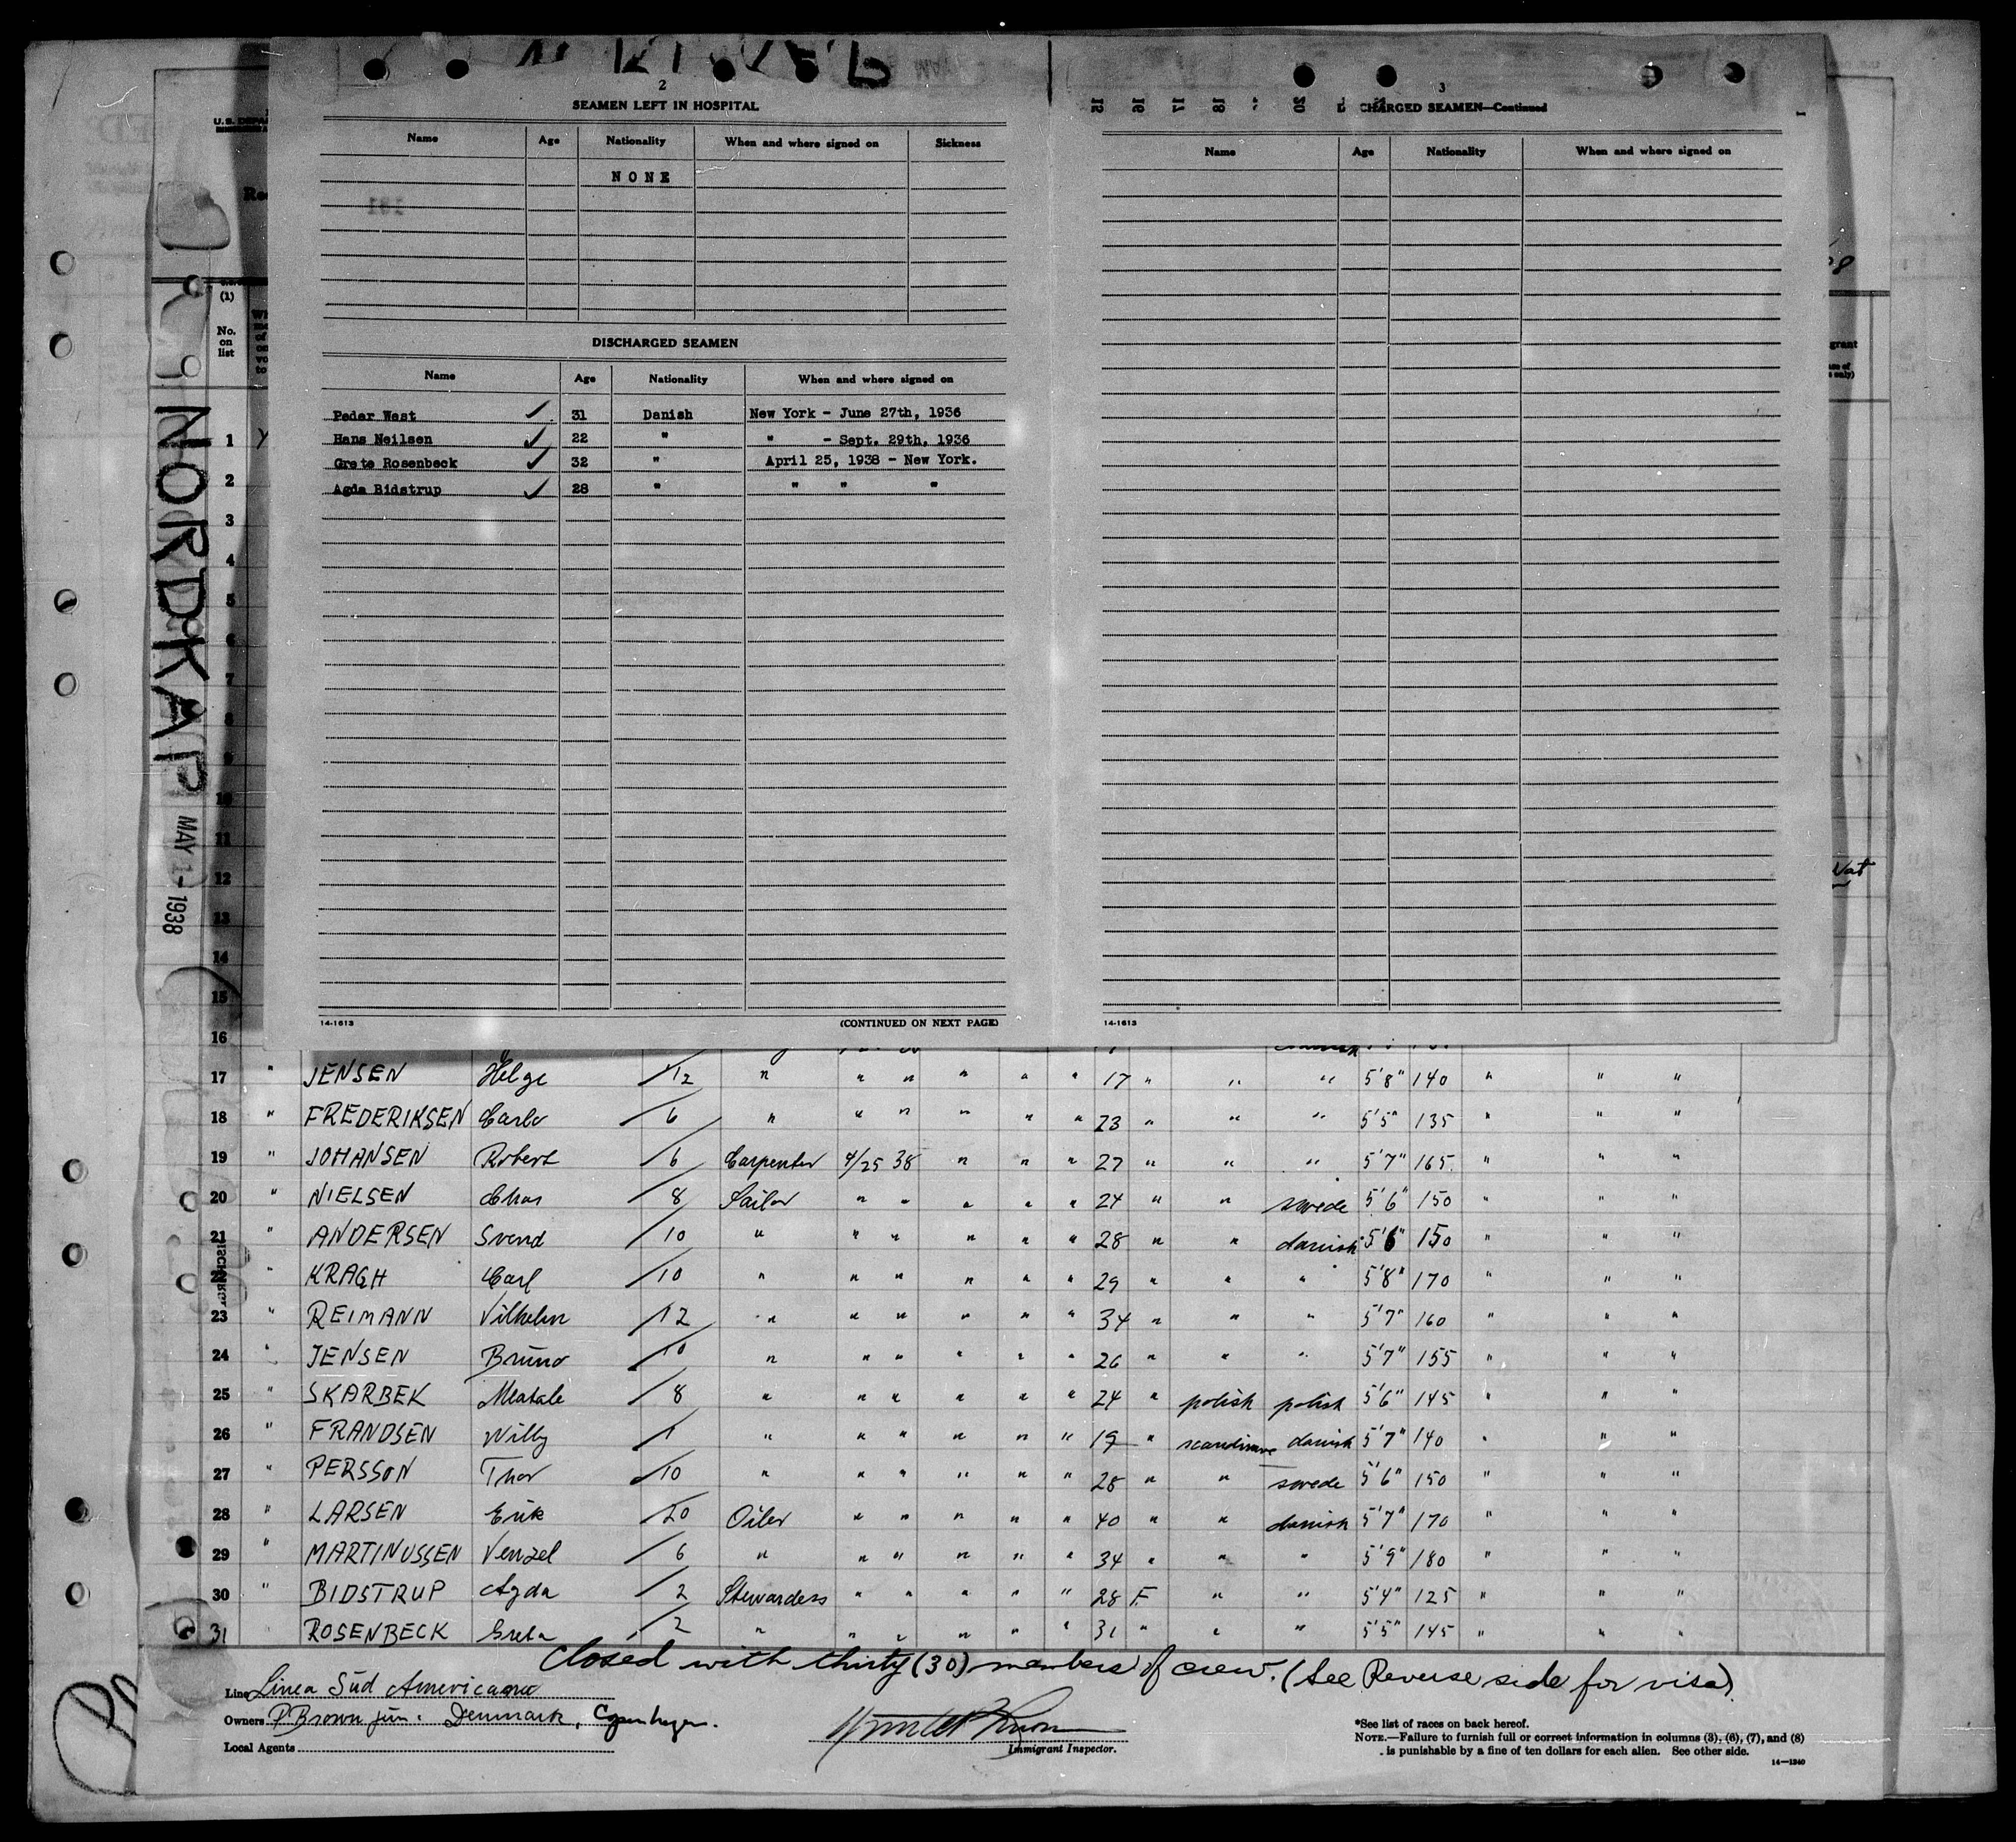 2
SEAMEN LEFT IN HOSPITAL
Name Age Nationality When and where signed on Sickness
NONE
DISCHARGED SEAMEN
Name Age Nationality When and where signed on
Peder West 31 Danish New York - June 27th, 1936
Hans Neilsen 22 " " - Sept. 29th, 1936
Grete Rosenbeck 32 " April 25, 1938 - New York.
Agda Bidstrup 28 " " " "
14-1613 (CONTINUED ON NEXT PAGE)
3
CHARGED SEAMEN—Continued
Name Age Nationality When and where signed on
14-1613
U.S. DEPA
(1)
No. on list
NORDKAP
MAY 1 - 1938
1
2
3
4
5
6
7
8
9
10
11
12
13
14
15
16
17 " JENSEN Helge 12 " " " " " " 17 " " " 5'8" 140 " " "
18 " FREDERIKSEN Carlo 6 " " " " " " 23 " " " 5'5" 135 " " "
19 " JOHANSEN Robert 6 Carpenter 4/25 38 " " " 27 " " " 5'7" 165 " " "
20 " NIELSEN Chas 8 Sailor " " " " " 24 " " swede 5'6" 150 " " "
21 " ANDERSEN Svend 10 " " " " " " 28 " " danish 5'6" 150 " " "
22 " KRAGH Carl 10 " " " " " " 29 " " " 5'8" 170 " " "
23 " REIMANN Vilhelm 12 " " " " " " 34 " " " 5'7" 160 " " "
24 " JENSEN Bruno 10 " " " " " " 26 " " " 5'7" 155 " " "
25 " SKARBEK 8 " " " " " " 24 " polish polish 5'6" 145 " " "
26 " FRANDSEN Willy 1 " " " " " " 19 " danish 5'7" 140 " " "
27 " PERSSON Thor 10 " " " " " " 28 " " swede 5'6" 150 " " "
28 " LARSEN Erik 20 Oiler " " " " " 40 " " danish 5'7" 170 " " "
29 " MARTINUSSEN Venzel 6 " " " " " " 34 " " " 5'9" 180 " " "
30 " BIDSTRUP Agda 2 Stewardess " " " " " 28 F. " " 5'4" 125 " " "
31 " ROSENBECK Greta 2 " " " " " " 31 " " " 5'5" 145 " " "
Closed with thirty (30) members of crew. (See Reverse side for visa)
Line Linea Sud Americana
Owners P Brown jun. Denmark, Copenhagen.
Local Agents
Immigrant Inspector.
*See list of races on back hereof.
NOTE.—Failure to furnish full or correct information in columns (3), (6), (7), and (8)
is punishable by a fine of ten dollars for each alien. See other side.
14—1240